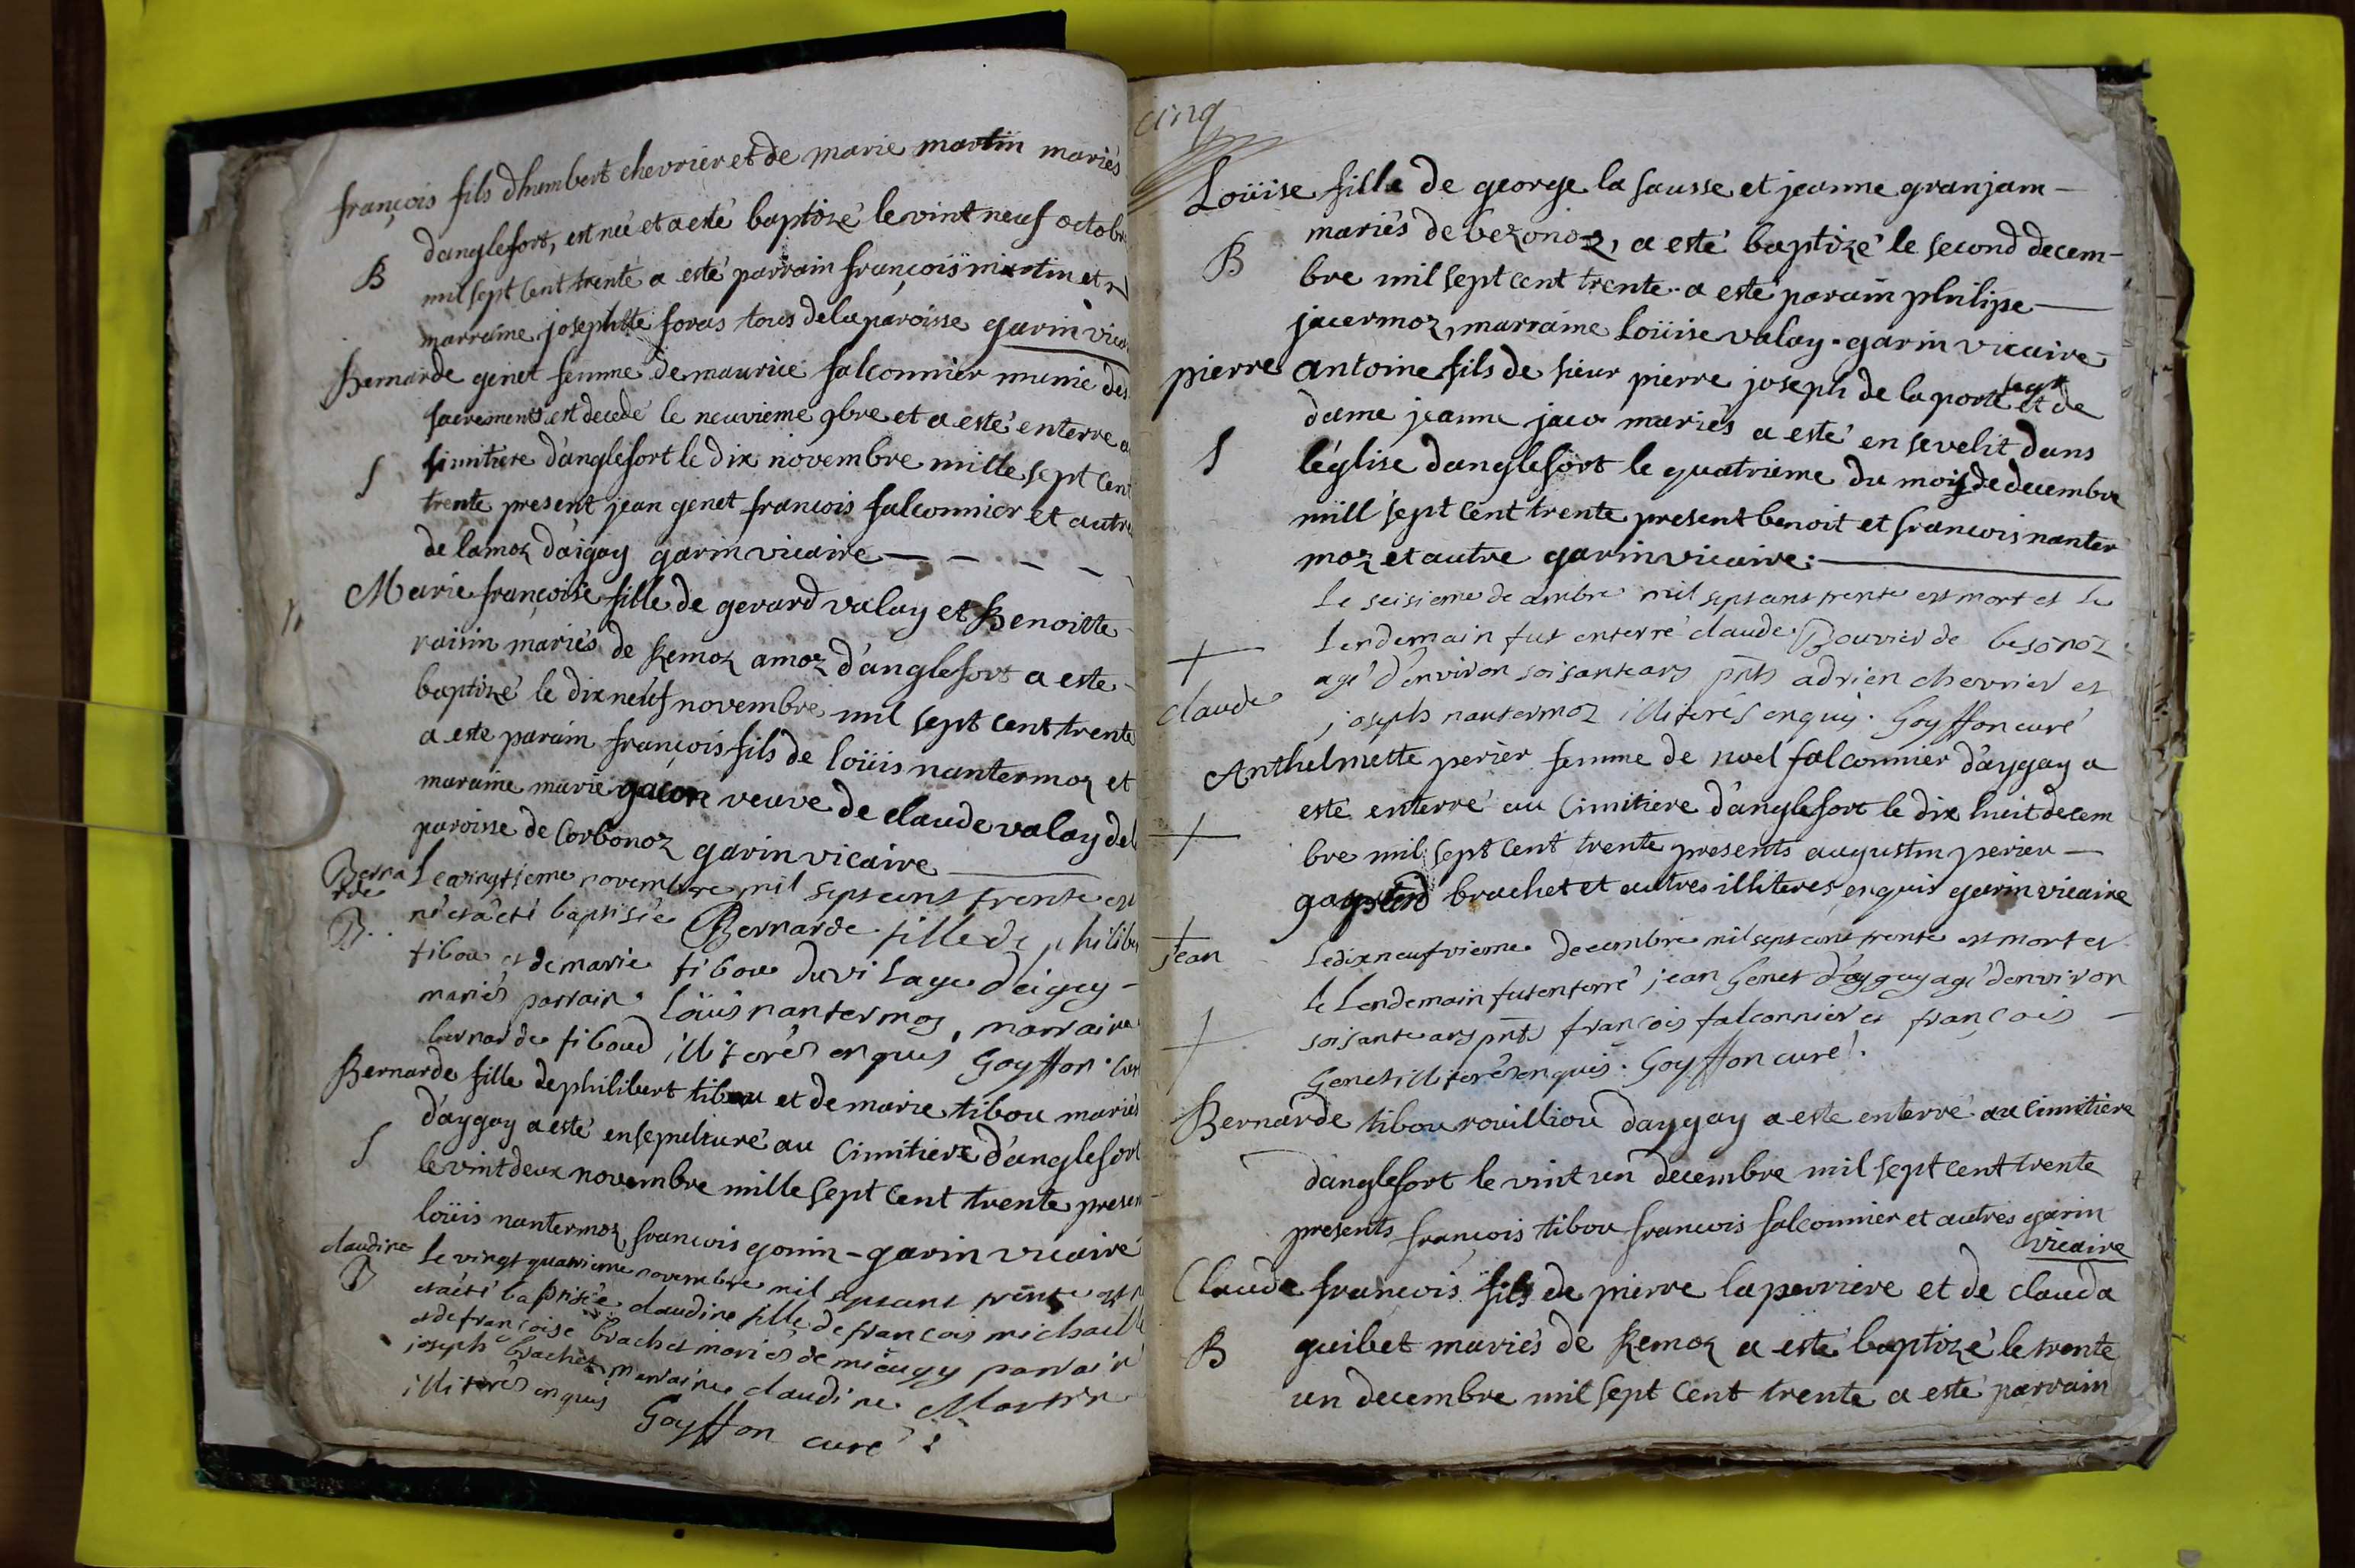 françois fils dhumbert chevrier et de marie martin mariés
danglefort, est né et a esté baptizé le vint neuf octobr
B
mil sept cent trente a esté parrain françois martin et
marraine josephte foras tous de la paroisse garin vica
Bernarde genet femme de maurice falconnier munie des
sacrements est decedé le neuvieme 9bre et a esté enterre a
S
simitiere d'anglefort le dix novembre mille sept cent
trente present jean genet francois falconnier et autre
de lamoz d'aigay garin vicaire
Marie françoise fille de gerard valay et Benoitte
raisin mariés de Remoz amoz d'anglefort a este
baptizé le dix neuf novembre mil sept cent trente
a este parain françois fils de loüis nantermoz et
maraine marie gacon veuve de claude valay de
paroisse de Corbonoz garin vicaire
Berna
rde
Le vingtieme novembre mil sept cens trente est
B
né et a eté baptisée Bernarde fille de philibe
tibou et de marie tibou du vilage d'eigey
mariés parrain loüis nantermoz, marraine
bernarde tiboud illiterés enquis Goyffon cur
Bernarde fille de philibert tibou et de marie tibou mariés
d'aygay a esté ensepulturé au Cimitiere d'anglefort
S
le vint deux novembre mille sept cent trente presen
loüis nantermoz, francois gonin - garin vicaire
claudine
le vingt quatrieme novembre mil sept cens trente est
B
et a eté baptisée claudine fille de françois michaell
et de françoise brachet mariés de mieugy parrain
joseph brachet marraine claudine Martin
illiterés enquis
Goyffon curé
cinq
Loüise fille de george la sausse et jeanne granjam -
mariés de bezonoz, a esté baptizé le second decem-
B
bre mil sept cent trente a esté parain philipe
jacermoz, marraine Loüise valay - garin vicaire
pierre antoine fils de sieur pierre joseph de la porte et de
dame jeanne jaco mariés a esté en sevelit dans
S
l'église danglefort le quatrieme du mois de decembre
mill sept cent trente present benoit et francois nanter
moz et autre garin vicaire
Le seisieme decembre mil sept cens trente est mort et le
Lendemain fut enterré claude Bouvier de besonoz
agé d'environ soisante ans pnts adrien chevrier et
claude
joseph nantermoz illiterés enquis. Goyffon curé
Anthelmette perier femme de noel falconnier d'aygay a
esté enterré au Cimitiere d'anglefort le dix huit decem
bre mil sept cent trente presents augustin perier
brachet et autres illiteres enquis garin vicaire
Jean
Le dix neufvieme decembre mil sept cens trente est mort et
le Lendemain fut enterré jean Genet d'aygay agé denviron
soisante ans pnts françois falconnier et françois
Genet illiterés enquis. Goyffon curé.
Bernarde tibou rouilliou daygay a este enterré au Cimitiere
danglefort le vint un decembre mil sept cent trente
presents françois tibou francois falconnier et autres garin
vicaire
Claude francois fils de pierre laperriere et de clauda
B
guibet mariés de Remoz a esté baptizé le trente
un decembre mil sept Cent trente a esté parrain